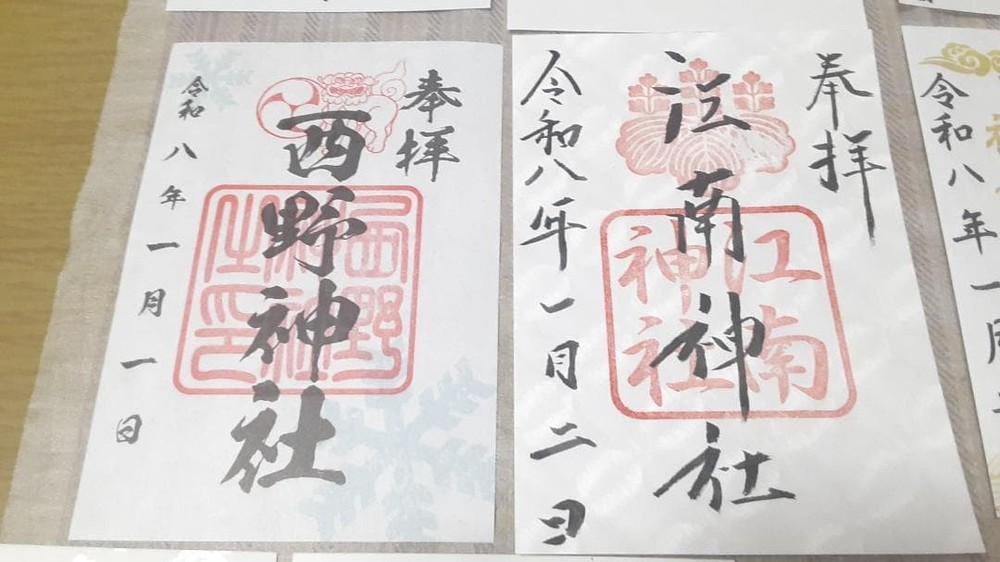 奉拝
西野神社
西野
神社
之印
令和八年一月一日
奉拝
江南神社
江南
神社
令和八年一月二日
令和八年一月